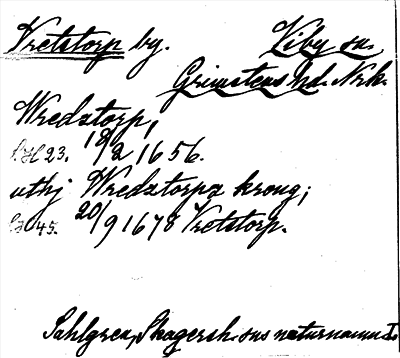 Vretstorp by. Viby sn.
Grimstens hd. Nrk.
Wredztorp,
18/2 1656.
uthj Wredztorpz kroug;
45. 20/9 1678 Vretstorp.
Sahlgren, Skagersh. sns naturnamn I.